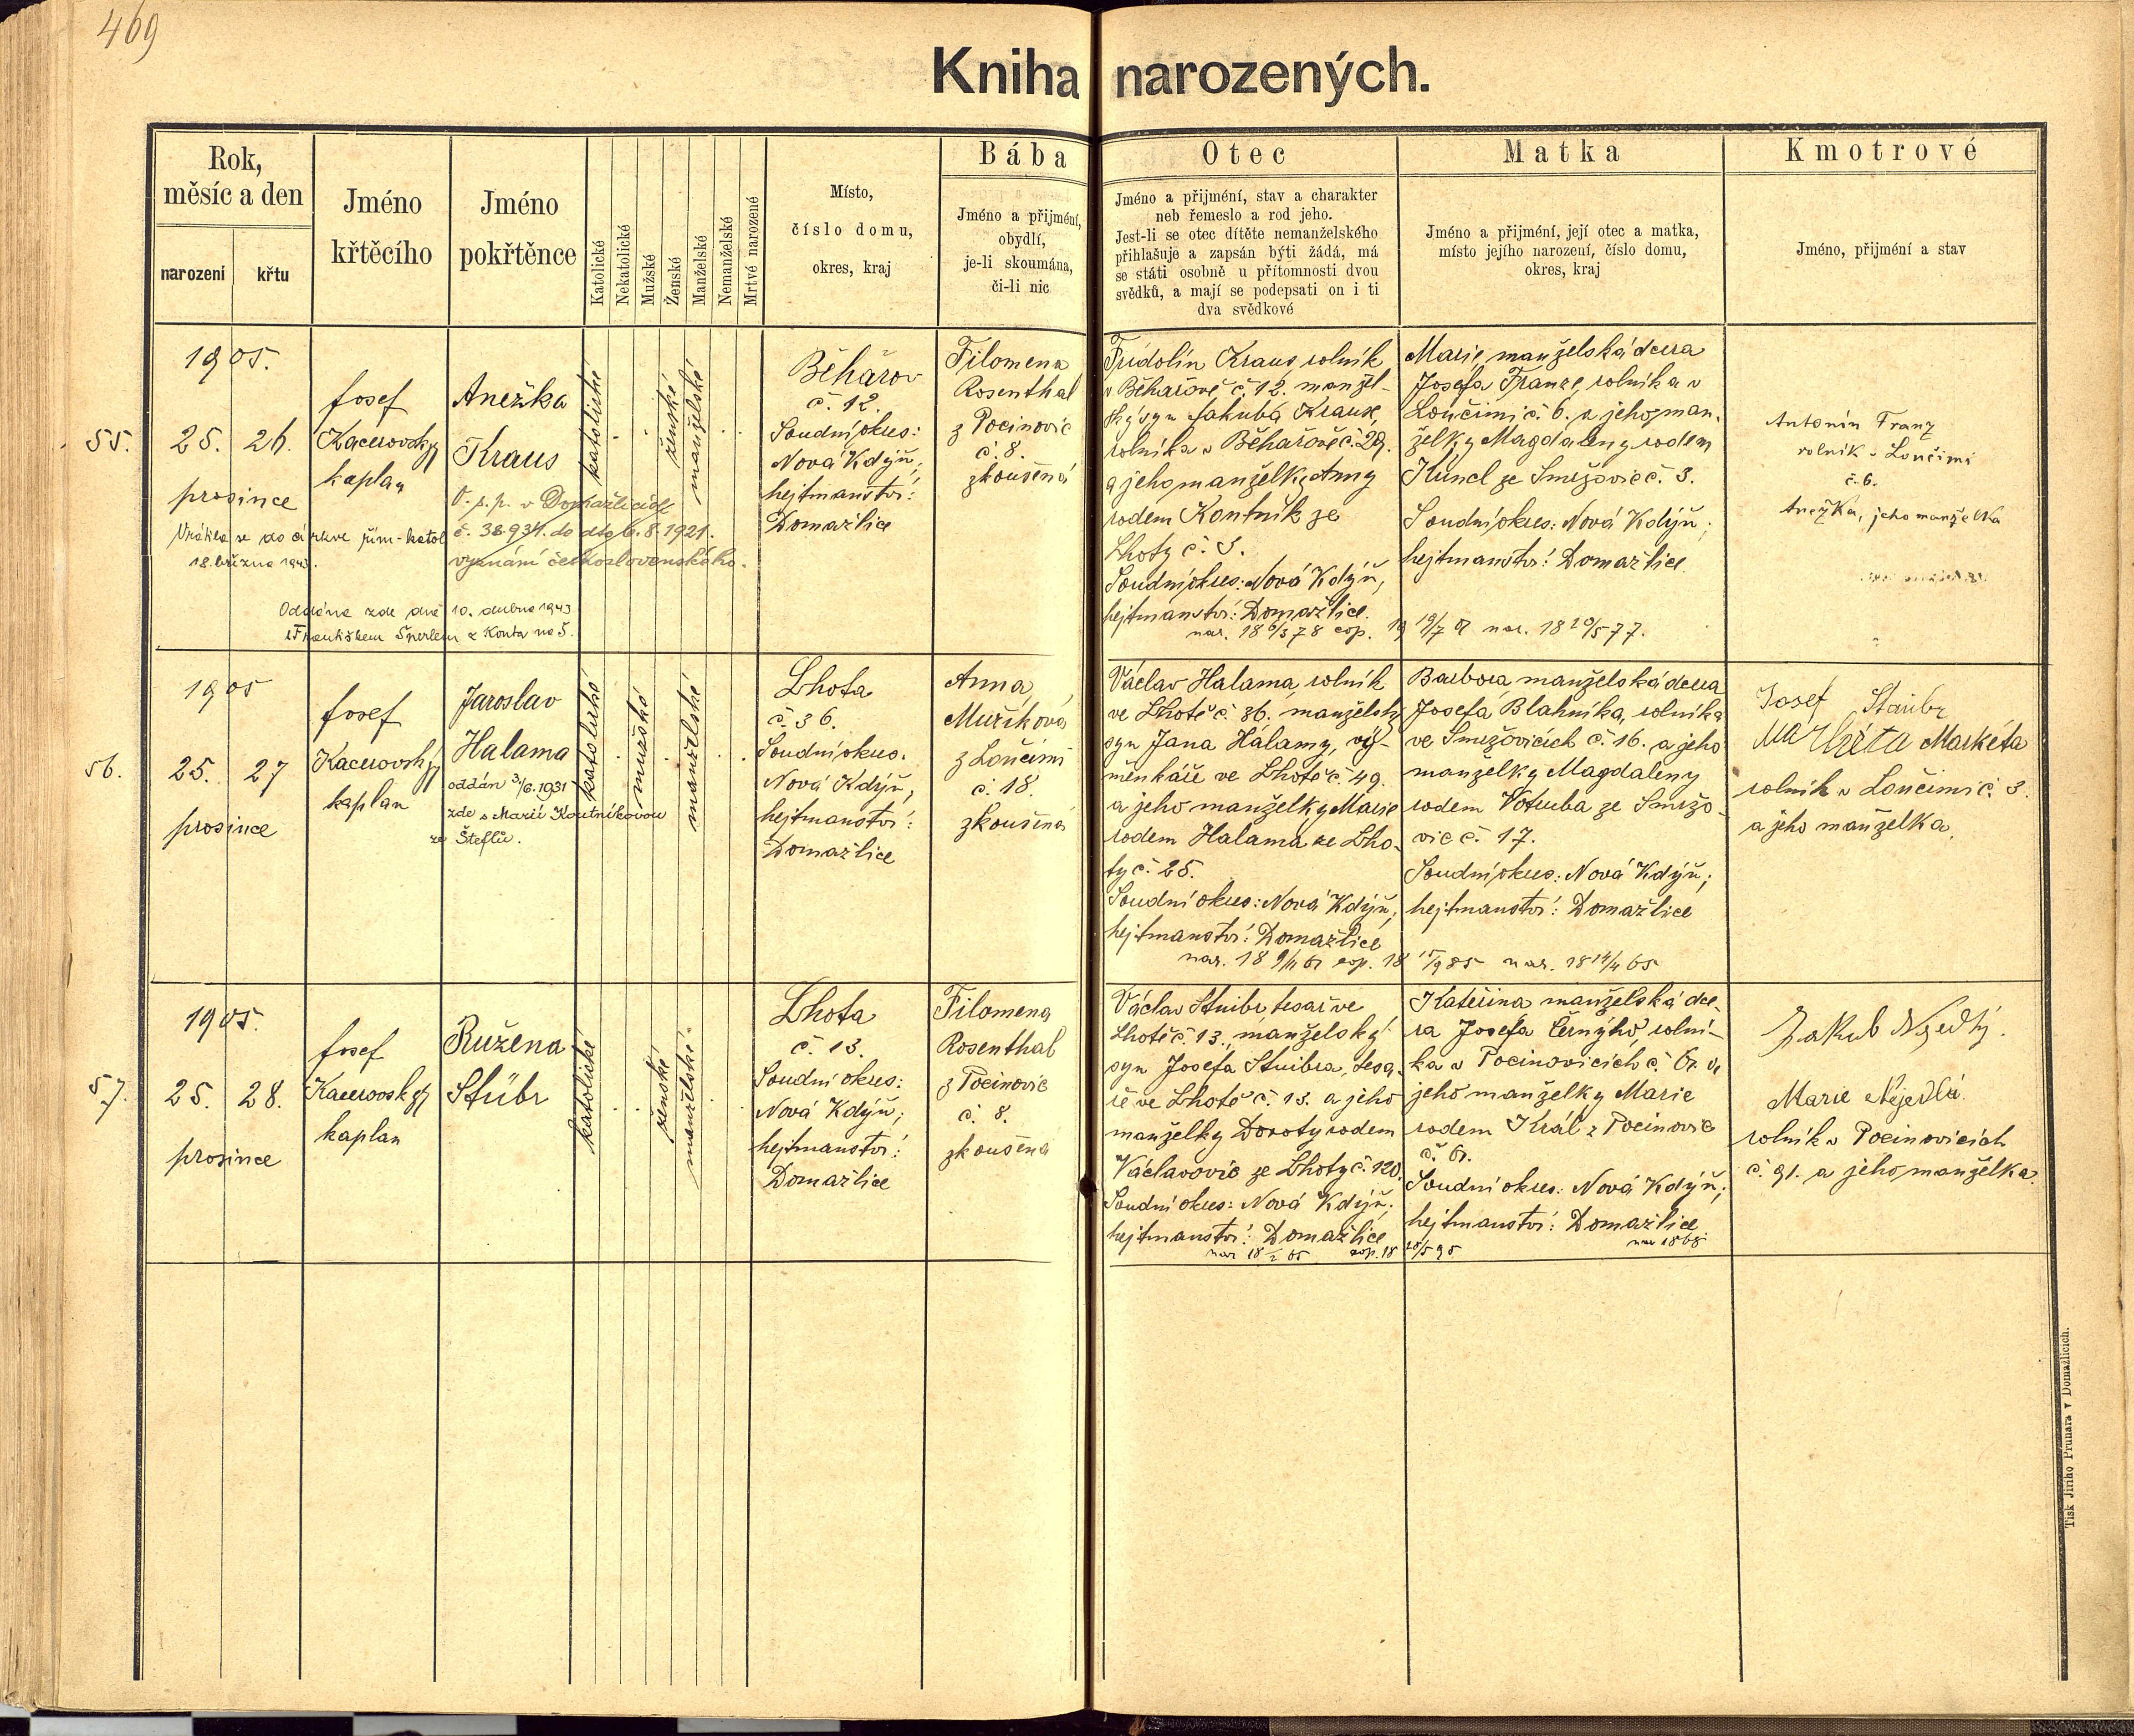 469
Kniha narozených.
Rok, měsíc a den
narození
křtu
Jméno křtěcího
Jméno pokřtěnce
Katolické
Nekatolické
Mužské
Ženské
Manželské
Nemanželské
Mrtvě narozené
Místo,
číslo domu,
okres, kraj
Bába
Jméno a příjmení,
obydlí,
je-li skoumána,
či-li nic
Otec
Jméno a přijmění, stav a charakter
neb řemeslo a rod jeho.
Jest-li se otec dítěte nemanželského
přihlašuje a zapsán býti žádá, má
se státi osobně u přítomnosti dvou
svědků, a mají se podepsati on i ti
dva svědkové
Matka
Jméno a přijmění, její otec a matka,
místo jejího narození, číslo domu,
okres, kraj
Kmotrové
Jméno, přijmění a stav
55.
1905.
25. 26.
prosince
Josef
Kacerovský
kaplan
Anežka
Kraus
V. s. p. v Domažlicích
č. 38934. do dto 6. 8. 1921.
vyznání československého.
Vrátila se do církve řím-katol
18. března 1943.
Oddána zde dne 10. dubna 1943
s Františkem Šperlem z Konta na Š.
katolické
ženské
manželské
Běhařov
č. 12.
Soudní okres:
Nová Kdýň;
hejtmanství:
Domažlice
Filomena
Rosenthal
z Pocinovic
č. 8.
zkoušená
Fridolín Kraus, rolník
v Běhařově č. 12. manžel-
ský syn Jakuba Krause,
rolníka v Běhařově č. 29.
a jeho manželky Anny
rodem Kontník ze
Lhoty č. 3.
Soudní okres: Nová Kdýň,
hejtmanství: Domažlice.
nar. 18 6/3 78 cop. 19
Marie, manželská dcera
Josefa Franze, rolníka v
Loučimi č. 6. a jeho man-
želky Magdaleny rodem
Kuncl ze Smržovic č. 3.
Soudní okres: Nová Kdýň;
hejtmanství: Domažlice
19/7 01 nar. 18 20/5 77.
Antonín Franz
rolník v Loučimi
č. 6.
Anežka, jeho manželka
56.
1905
25. 27
prosince
Josef
Kacerovský
kaplan
Jaroslav
Halama
oddán 3/6. 1931
zde s Marií Koutníkovou
ze Šteflů.
katolické
mužské
manželské
Lhota
č. 36.
Soudní okres.
Nová Kdýň;
hejtmanství:
Domažlice
Anna
Mužíková
z Loučimi
č. 18.
zkoušená
Václav Halama, rolník
ve Lhotě č. 36. manželský
syn Jana Halamy, vý-
měnkáře ve Lhotě č. 49.
a jeho manželky Marie
rodem Halama ze Lho-
ty č. 25.
Soudní okres: Nová Kdýň;
hejtmanství: Domažlice
nar. 18 9/11 61 cop. 18
Barbora manželská dcera
Josefa Blahníka, rolníka
ve Smržovicích č. 16. a jeho
manželky Magdaleny
rodem Votruba ze Smržo-
vic č. 17.
Soudní okres: Nová Kdýň;
hejtmanství: Domažlice
15/9 85 nar. 18 14/4 65
Josef
Markéta
rolník v Loučimi č. 3.
a jeho manželka.
57.
1905.
25. 28.
prosince
Josef
Kacerovský
kaplan
Ružena
Stübr
katolické
ženské
manželské
Lhota
č. 13.
Soudní okres:
Nová Kdýň;
hejtmanství:
Domažlice
Filomena
Rosenthal
z Pocinovic
č. 8.
zkoušená
Václav Stuibr tesař ve
Lhotě č. 13., manželský
syn Josefa Stuibra, tesa-
ře ve Lhotě č. 13. a jeho
manželky Doroty rodem
Václavovic ze Lhoty č. 120.
Soudní okres: Nová Kdýň;
hejtmanství: Domažlice
Kateřina manželská dce-
ra Josefa Černýho, rolní-
ka v Pocinovicích č. 61. a
jeho manželky Marie
rodem Král z Pocinovic
č. 61.
Soudní okres: Nová Kdýň;
hejtmanství: Domažlice
28/5 95 nar 1868
Jakub Nejedlý.
Marie Nejedlá.
rolník v Pocinovicích
č. 91. a jeho manželka.
Tisk Jiřího Prunara v Domažlicích.